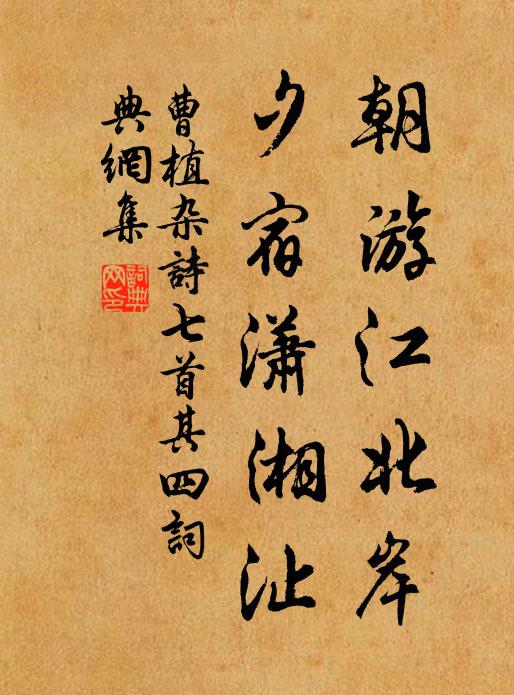 朝游江北岸
夕宿瀟湘沚
曹植杂詩七首其四詞
典網集
詞典
网印